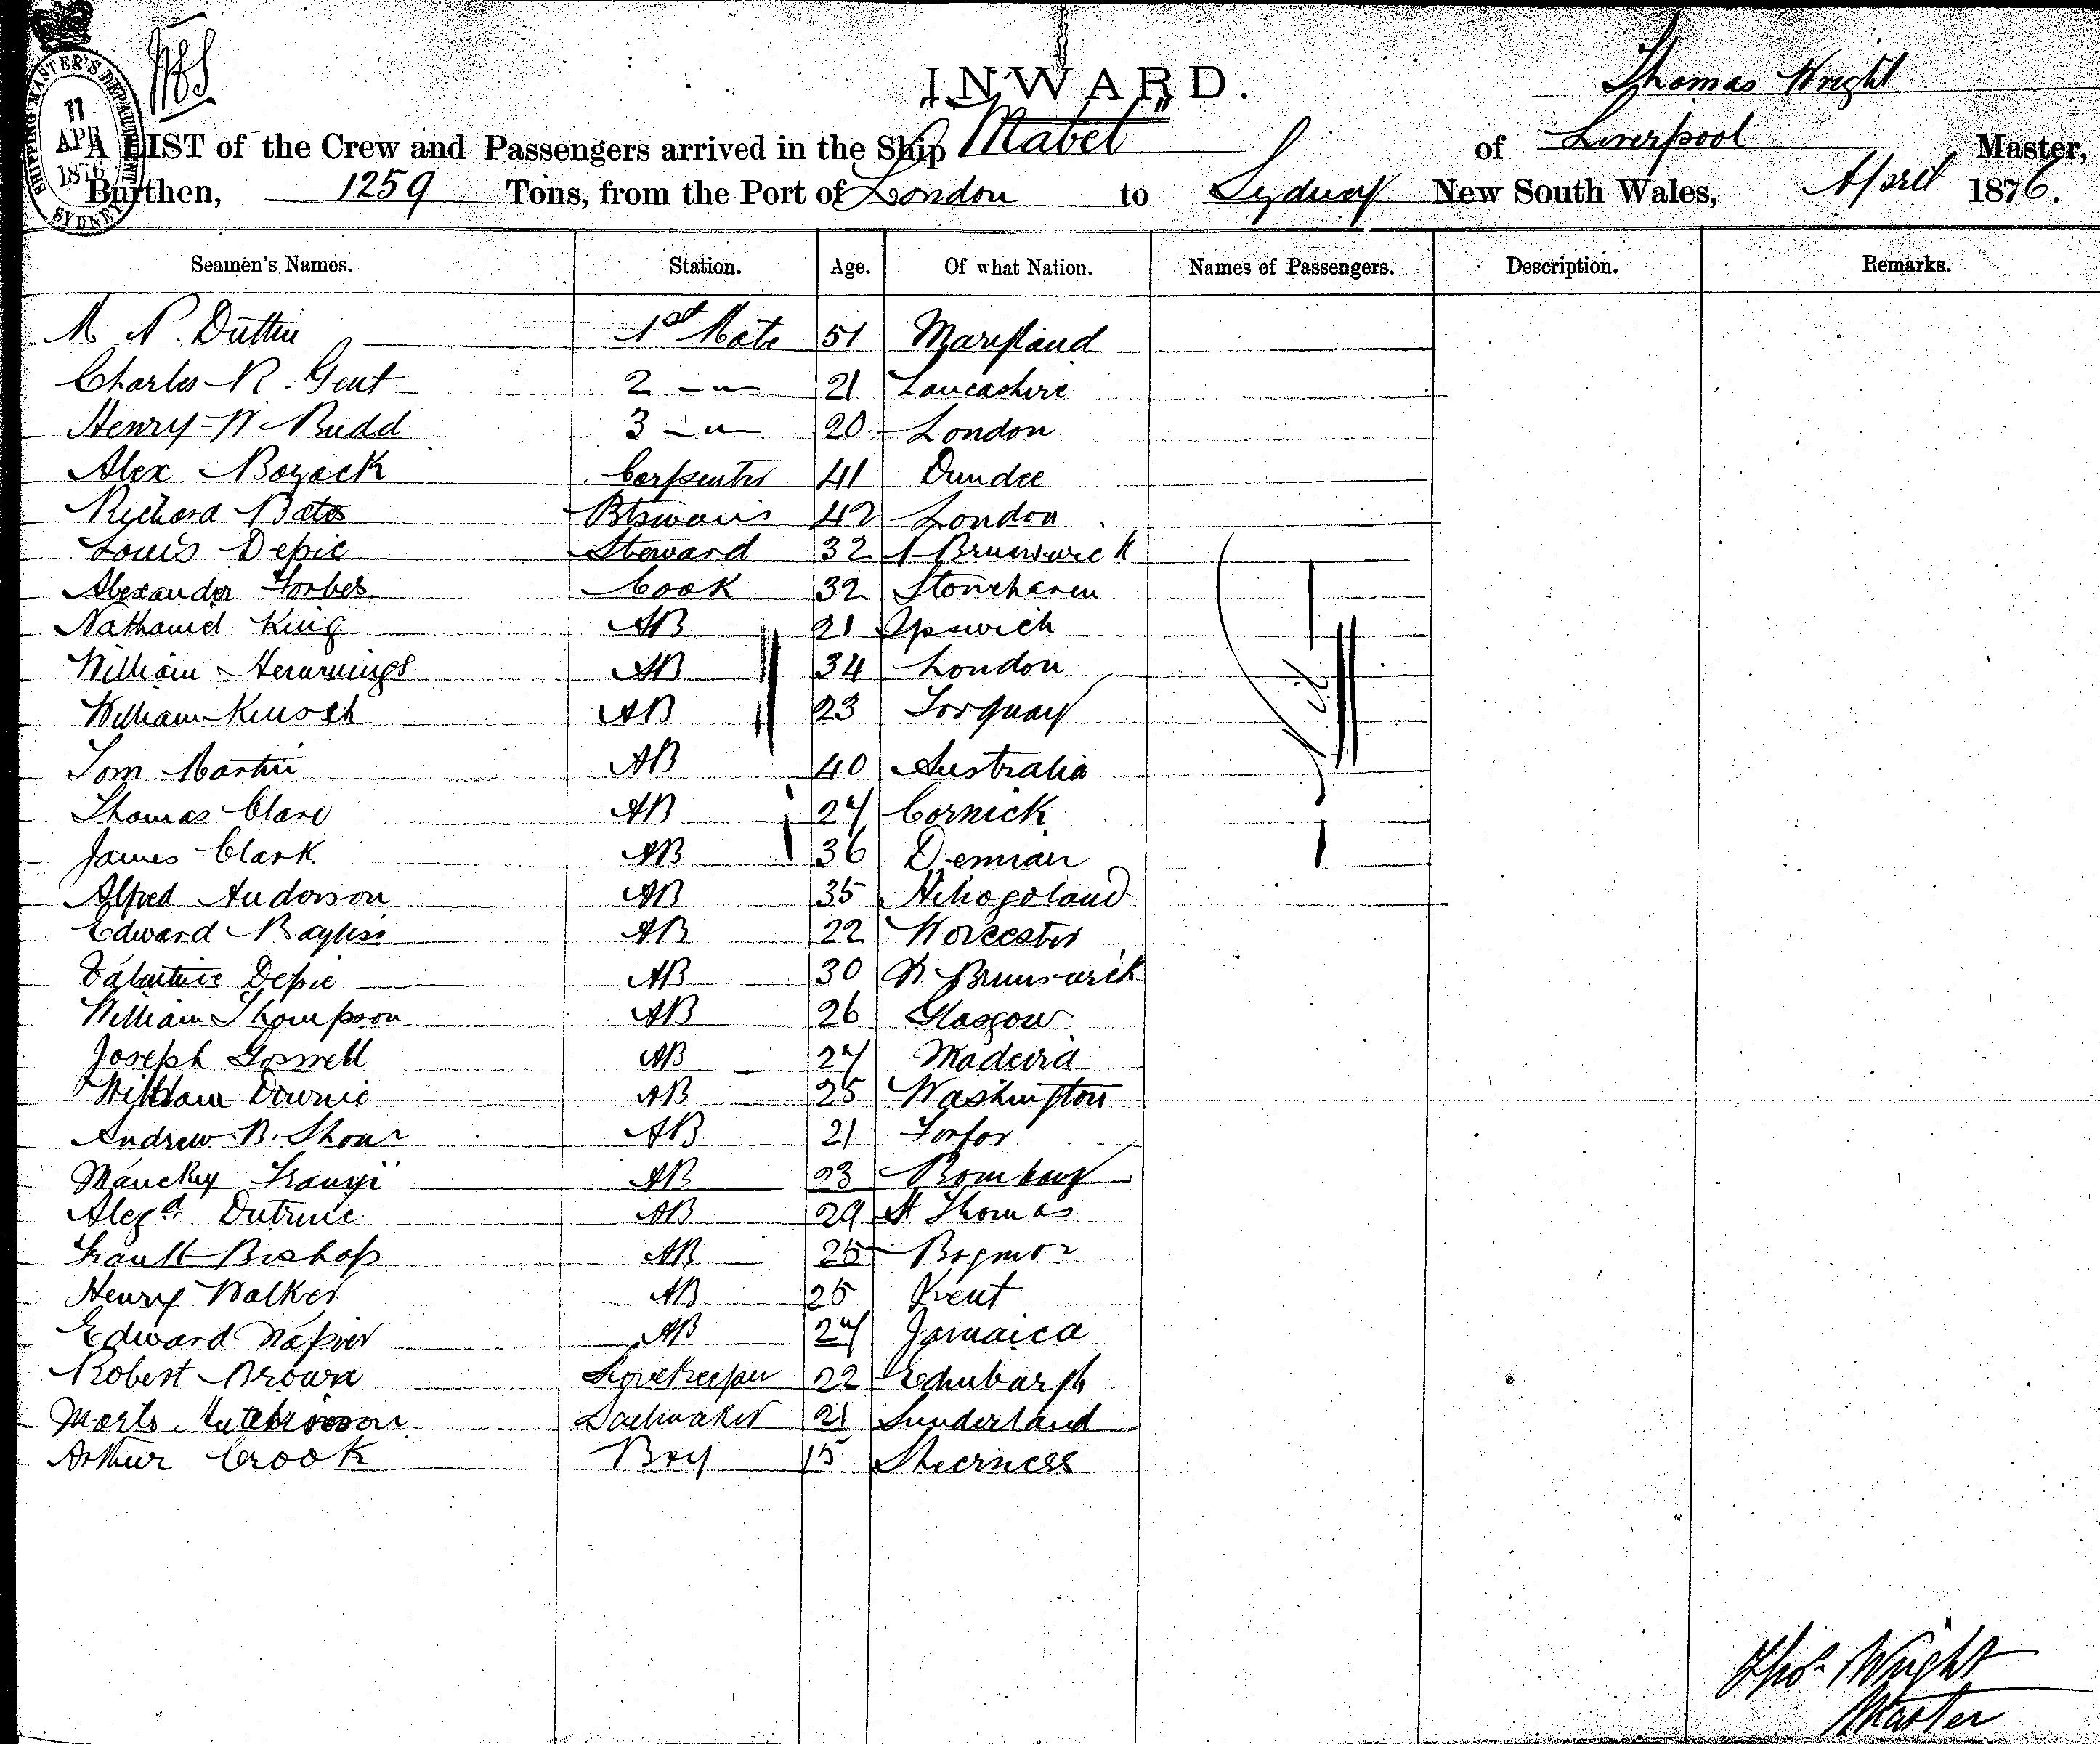 SHIPPING MASTER'S DEPARTMENT
11
APR
1876
SYDNEY
INWARD.
Thomas Wright
A LIST of the Crew and Passengers arrived in the Ship "Mabel" of Liverpool Master,
Burthen, 1259 Tons, from the Port of London to Sydney New South Wales, April 1876.
Seamen's Names. Station. Age. Of what Nation. Names of Passengers. Description. Remarks.
1st Mate 51 Maryland
Charles R. Gent 2 — " — 21 Lancashire
Henry W Rudd 3 — " — 20 London
Alex Bozack Carpenter 41 Dundee
Richard Bates 42 London
Louis Depie Steward 32 Brunswick
Alexander Forbes Cook 32 Stonehaven
Nathaniel King AB 21 Ipswich
William Hemmings AB 34 London
William AB 23 Torquay
Tom Martin AB 40 Australia
Thomas Clare AB 24
James Clark AB 36
Alfred Anderson AB 35 Heligoland
Edward Bayliss AB 22 Worcester
Valentine Depie AB 30 N Brunswick
William Thompson AB 26 Glasgow
Joseph Goswell AB 24 Madeira
William Downie AB 25 Washington
Andrew B. AB 21 Forfar
AB 23 Bombay
AB 29 St Thomas
Frank Bishop AB 25 Bognor
Henry Walker AB 25 Kent
Edward Napier AB 24 Jamaica
Robert Brown Storekeeper 22 Edinburgh
Hutchinson Sailmaker 21 Sunderland
Arthur Crook Boy 15 Sheerness
Nil
Thos Wright
Master